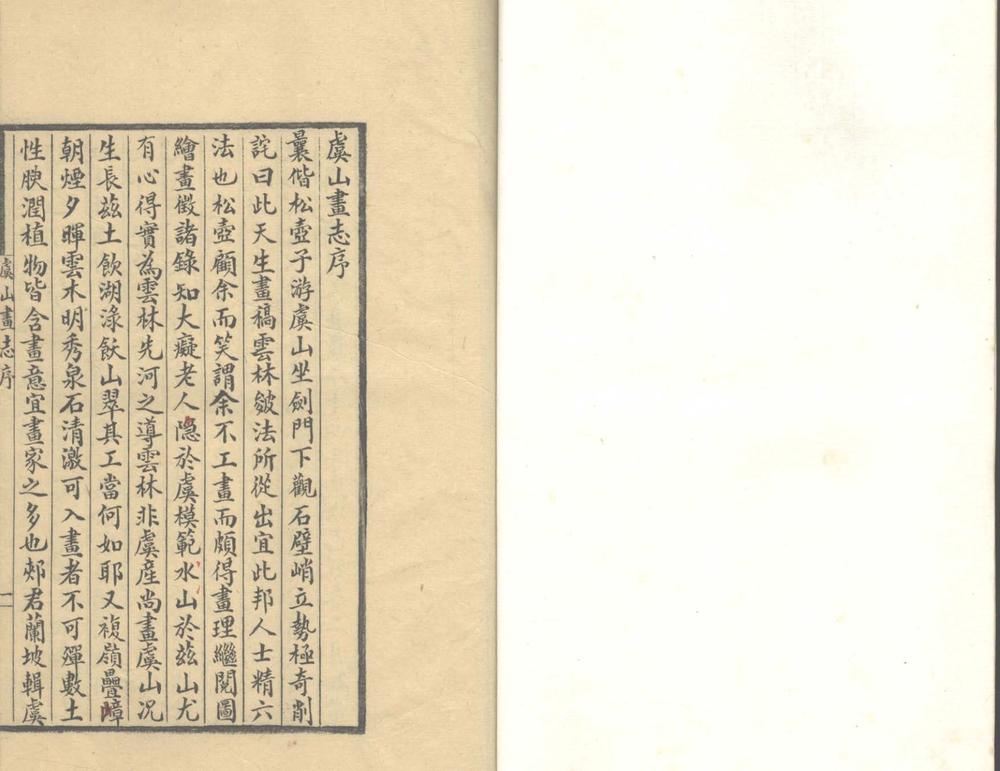 虞山畫志序
曩偕松壺子游虞山坐劍門下觀石壁峭立勢極奇削
詫曰此天生畫稿雲林皴法所從出宜此邦人士精六
法也松壺顧余而笑謂余不工畫而頗得畫理繼閱圖
繪畫徵諸錄知大癡老人隱於虞模範水山於茲山尤
有心得實為雲林先河之導雲林非虞產尚畫虞山况
生長茲土飲湖淥飫山翠其工當何如耶又複嶺疊嶂
朝煙夕暉雲木明秀泉石清激可入畫者不可殫數土
性腴潤植物皆含畫意宜畫家之多也郟君蘭坡輯虞
虞山畫志序
一